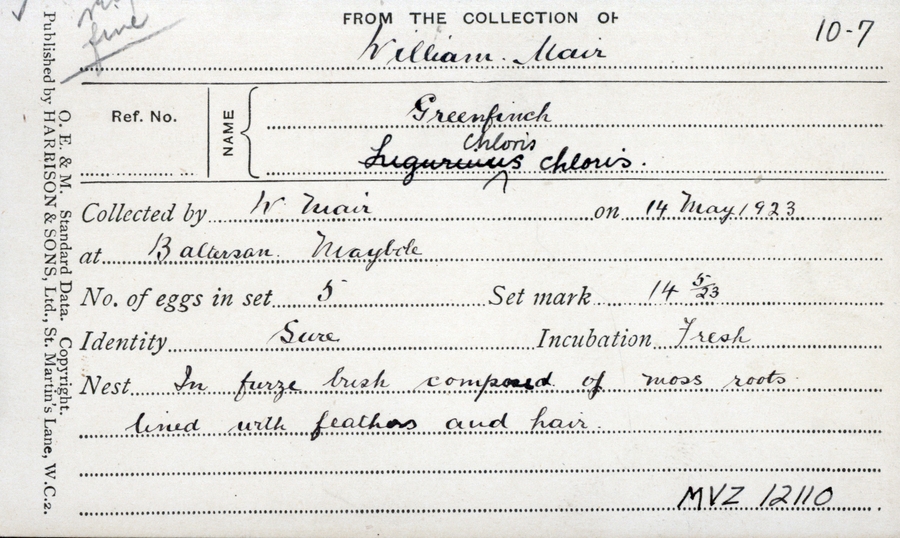 fine
FROM THE COLLECTION OF
William Mair
10-7
Ref. No.
NAME
Greenfinch
Chloris
Ligurinus chloris.
Collected by W Mair on 14 May 1923
at Balterson Maybole
No. of eggs in set 5 Set mark 14 5/23
Identity Sure Incubation Fresh
Nest In furze bush composed of moss roots
lined with feathers and hair.
MVZ 12110
O. E. & M. Standard Data. Copyright.
Published by HARRISON & SONS, Ltd., St. Martin's Lane, W.C.2.